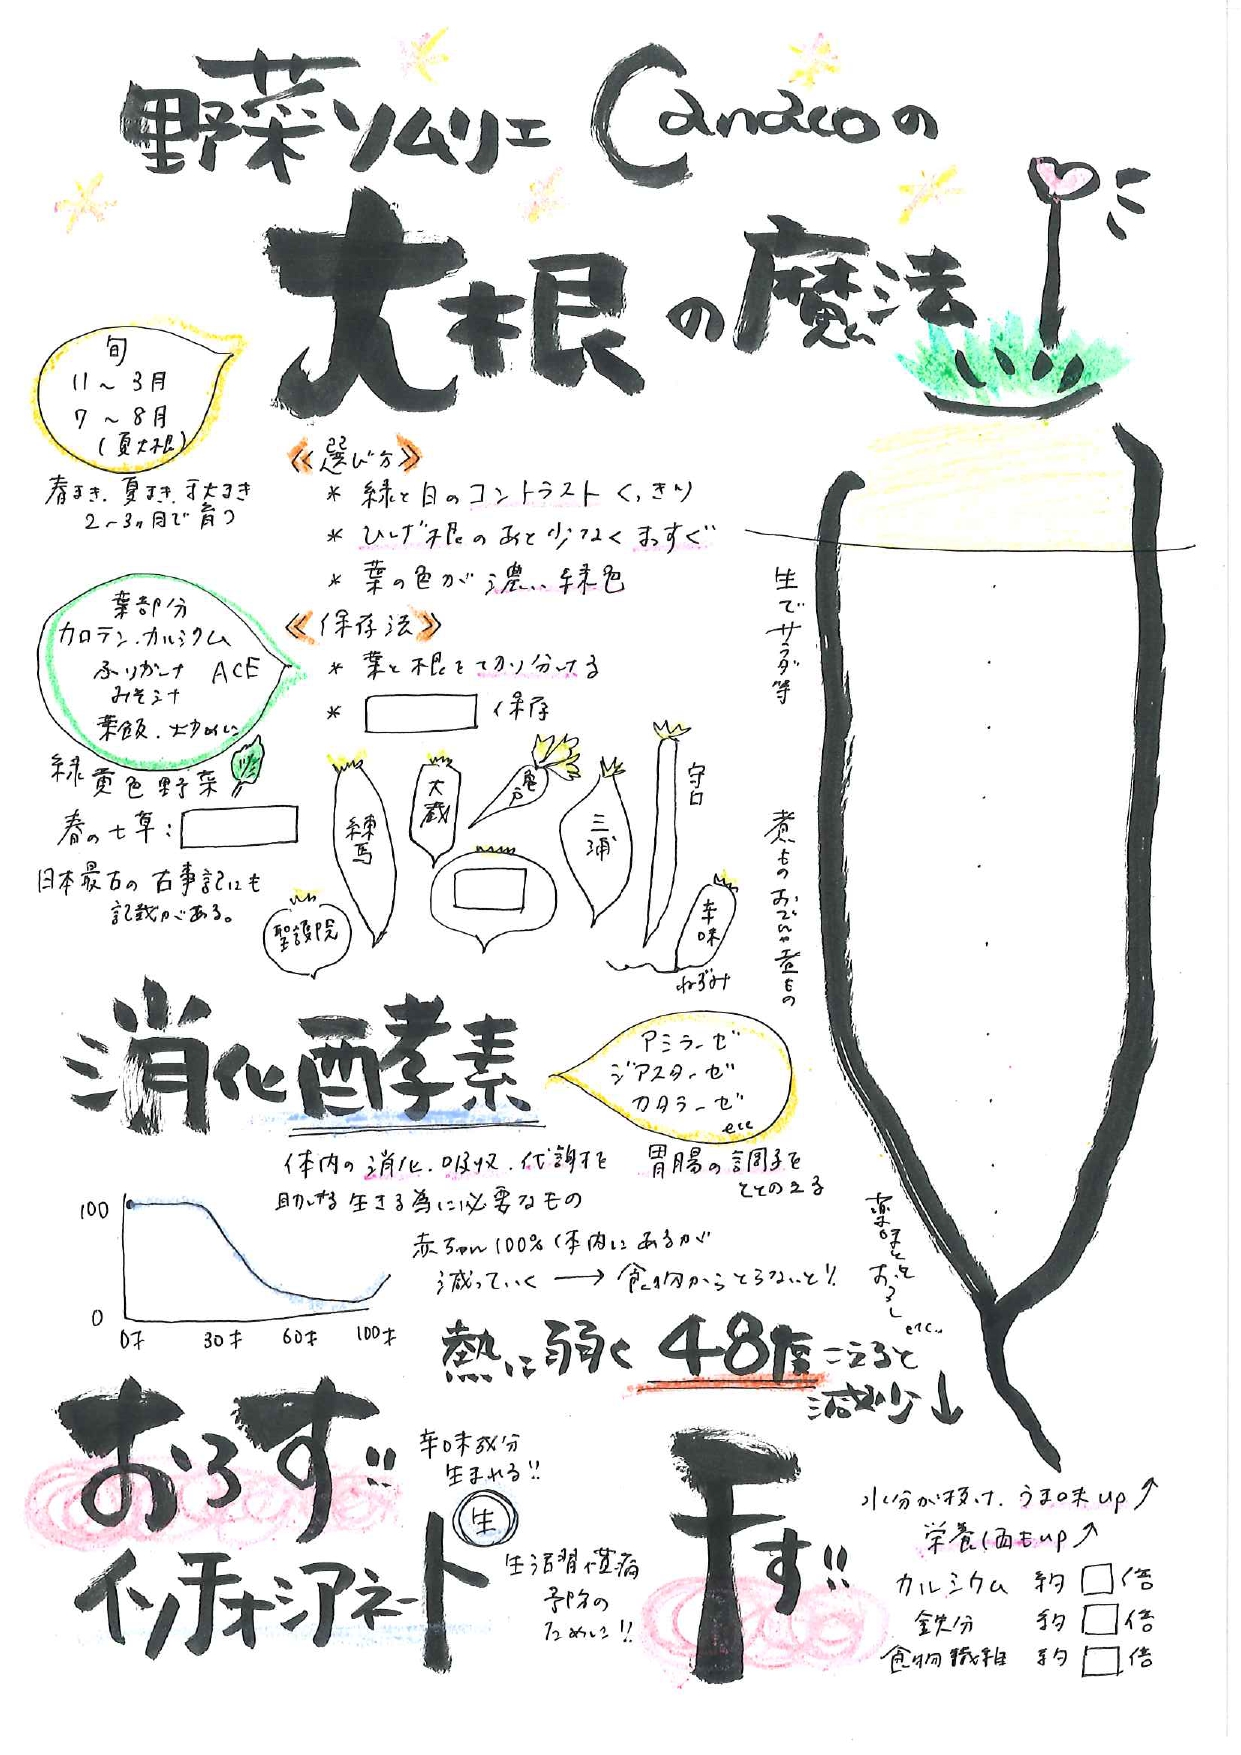 野菜ソムリエ Canacoの
大根の魔法
旬
11～3月
7～8月
(夏大根)
春まき、夏まき、秋まき
2～3ヶ月で育つ
葉部分
カロテン、カルシウム
ふりかけ ACE
みそ汁
葉飯、炒めに
緑黄色野菜
春の七草:
日本最古の古事記にも
記載がある。
《選び方》
* 緑と白のコントラストくっきり
* ひげ根のあと少なくまっすぐ
* 葉の色が濃い緑色
《保存法》
* 葉と根を切り分ける
* 保存
練馬
大蔵
亀戸
三浦
守口
聖護院
辛味
ねずみ
生でサラダ等
煮ものおでんや煮もの
薬味をおろし
etc..
消化酵素
アミラーゼ
ジアスターゼ
カタラーゼ
etc
体内の消化、吸収、代謝を
助ける生きる為に必要なもの
胃腸の調子を
ととのえる
100
0
0才 30才 60才 100才
赤ちゃん100%体内にあるが
減っていく → 食物からとらないと!!
熱に弱く 48度こえると
減少↓
おろす!!
辛味成分
生まれる!!
生
イソチオシアネート
生活習慣病
予防の
ために!!
干す!!
水分が抜け、うま味up↗
栄養価もup↗
カルシウム 約 倍
鉄分 約 倍
食物繊維 約 倍